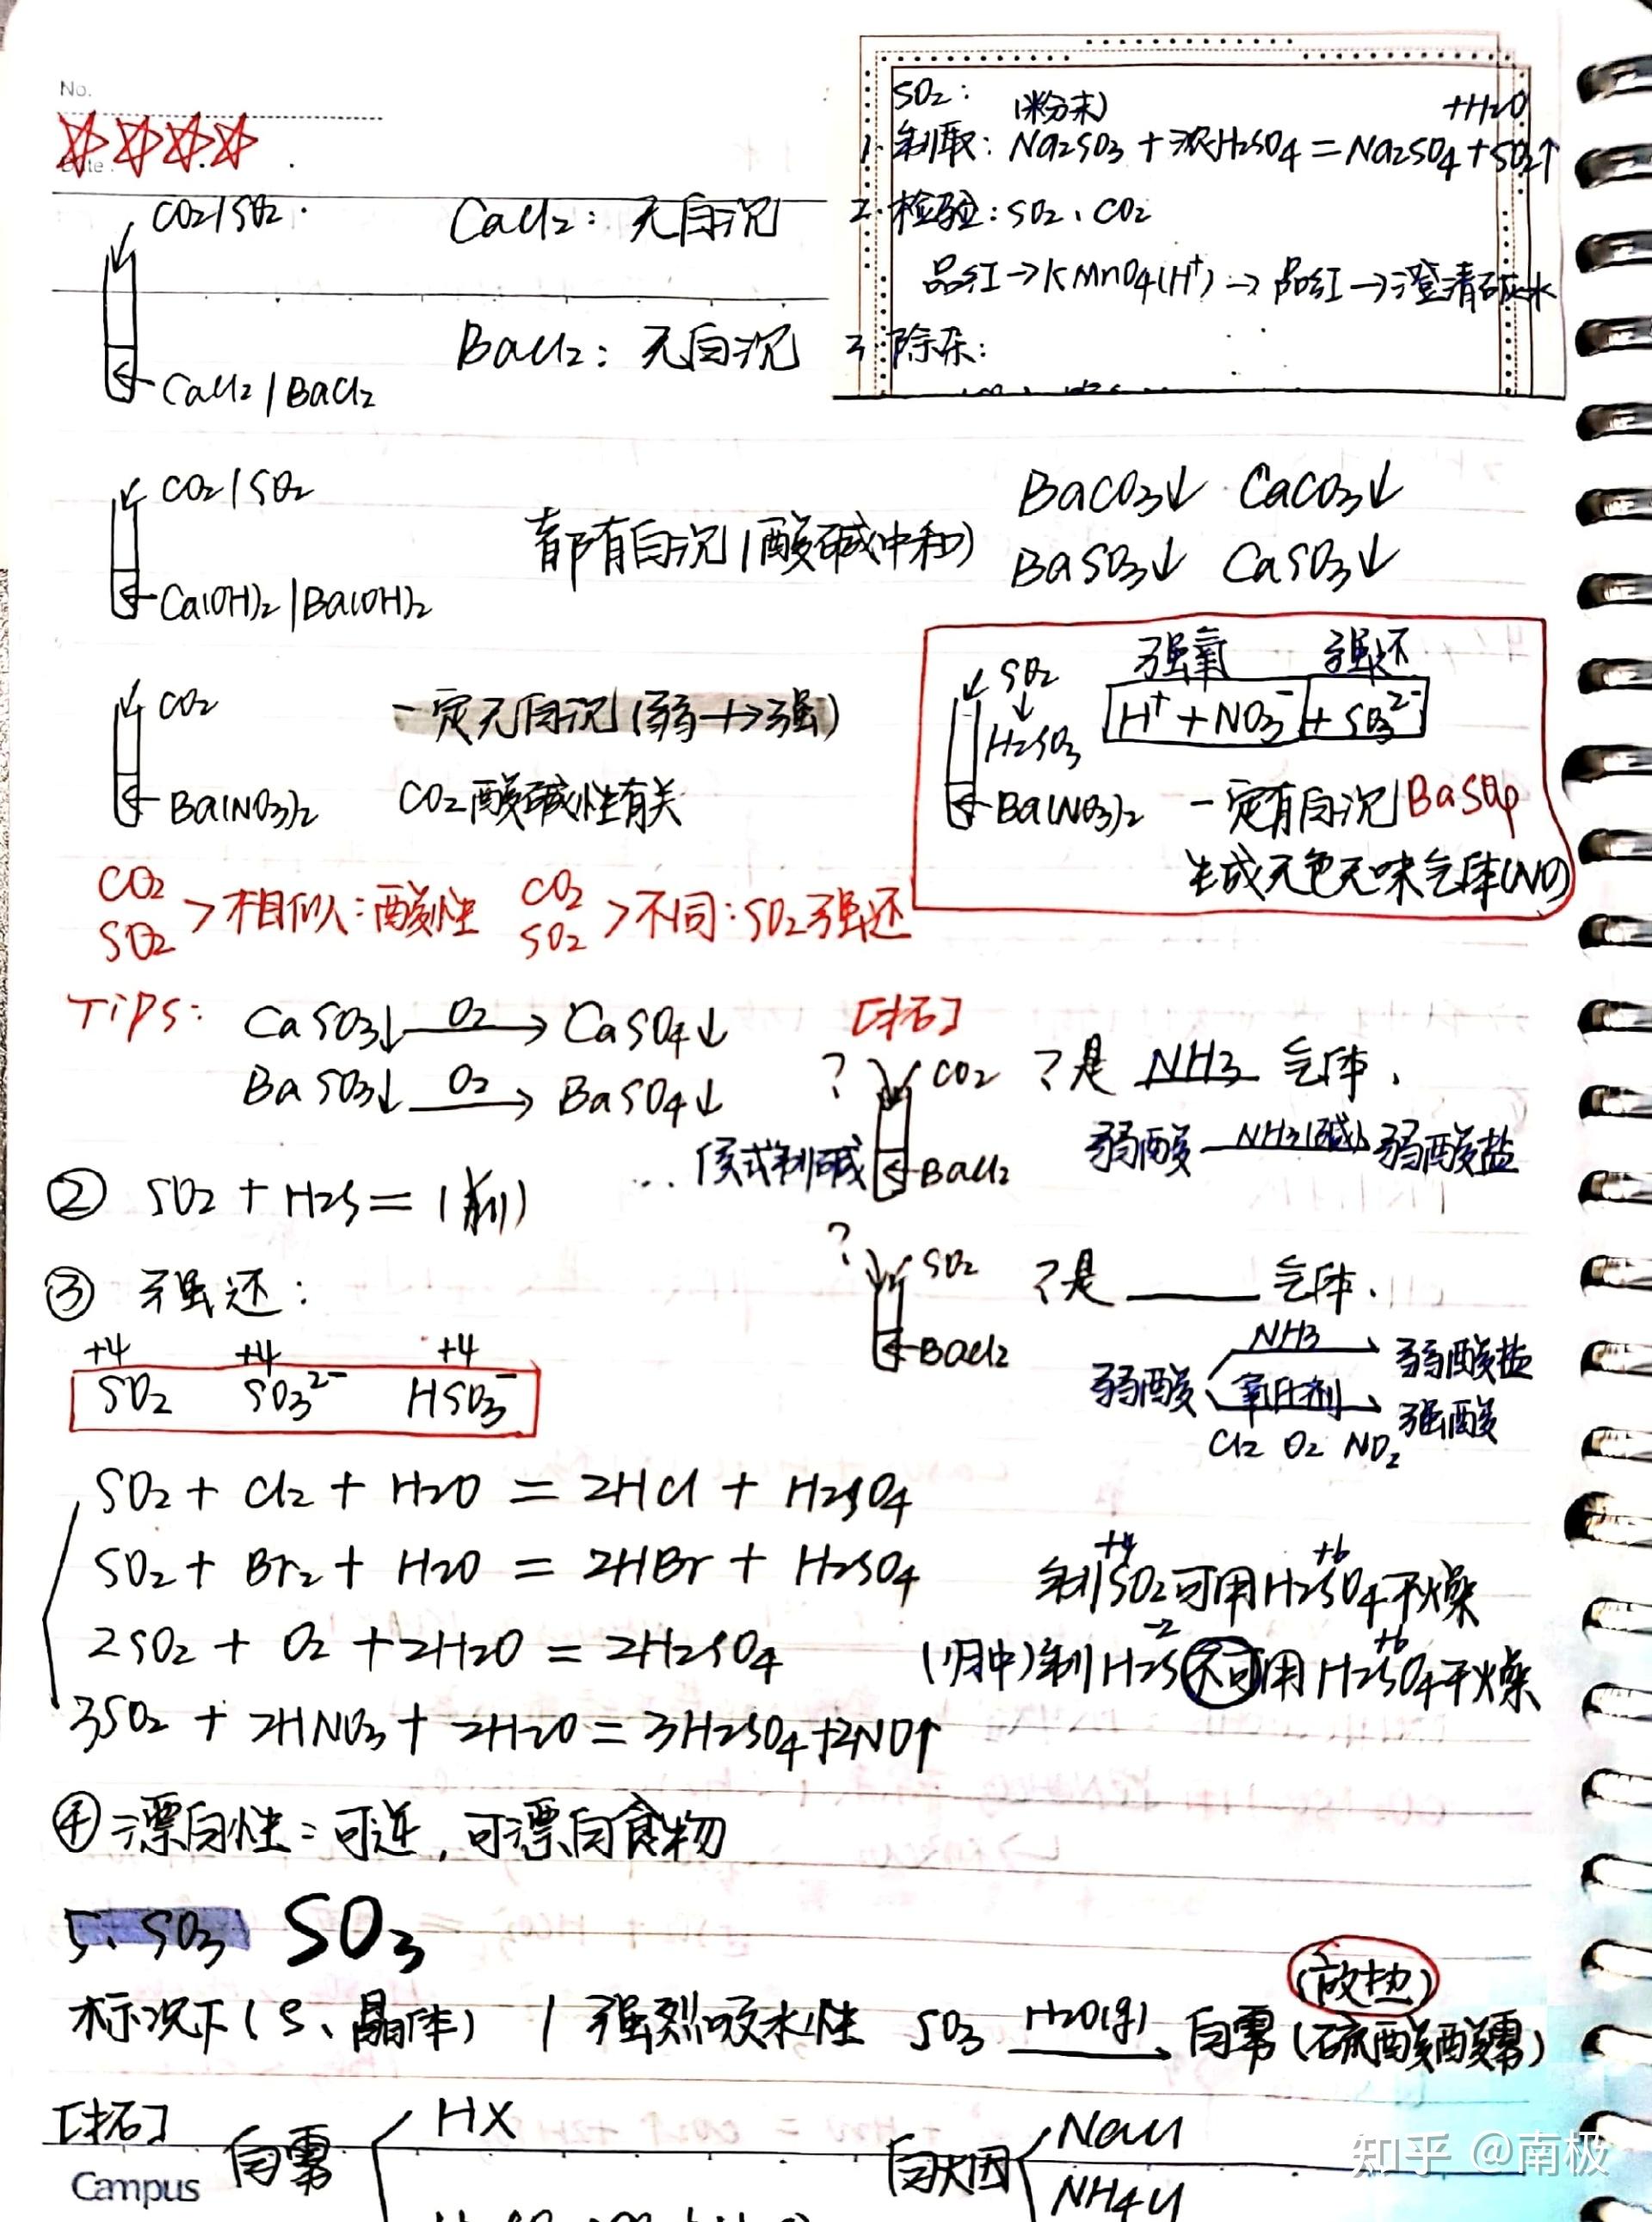 No.
Date
SO₂:
(粉末) +H₂O
1. 制取: Na₂SO₃ + 浓H₂SO₄ = Na₂SO₄ + SO₂↑
2. 检验: SO₂、CO₂
品红→KMnO₄(H⁺)→品红→澄清石灰水
3 除杂:
CO₂/SO₂.
CaCl₂: 无白沉
BaCl₂: 无白沉
CaCl₂/BaCl₂
CO₂/SO₂
都有白沉(酸碱中和)
BaCO₃↓ CaCO₃↓
BaSO₃↓ CaSO₃↓
Ca(OH)₂/Ba(OH)₂
CO₂
一定无白沉(弱-/->强)
CO₂酸碱性有关
Ba(NO₃)₂
强氧 强还
SO₂
↓
H₂SO₃
H⁺ + NO₃⁻ + SO₃²⁻
Ba(NO₃)₂
一定有白沉 BaSO₄
生成无色无味气体(NO)
CO₂
SO₂ >相似:酸性
CO₂
SO₂ >不同:SO₂强还
Tips:
CaSO₃↓ —O₂→ CaSO₄↓
BaSO₃↓ —O₂→ BaSO₄↓
[拓]
? CO₂ ?是 NH₃ 气体.
弱酸 —NH₃(碱)→ 弱酸盐
侯式制碱
BaCl₂
② SO₂ + H₂S = (前)
? SO₂ ?是 ____ 气体.
BaCl₂
弱酸 —NH₃→ 弱酸盐
—氧化剂→ 强酸
Cl₂ O₂ NO₂
③ 强还:
+4 +4 +4
SO₂ SO₃²⁻ HSO₃⁻
SO₂ + Cl₂ + H₂O = 2HCl + H₂SO₄
SO₂ + Br₂ + H₂O = 2HBr + H₂SO₄
2SO₂ + O₂ + 2H₂O = 2H₂SO₄
3SO₂ + 2HNO₃ + 2H₂O = 3H₂SO₄ + 2NO↑
+4 +6
制SO₂可用H₂SO₄干燥
-2 +6
(期中)制H₂S不可用H₂SO₄干燥
④ 漂白性:可逆,可漂白食物
5、SO₃ SO₃
(放热)
标况下(S、晶体) / 强烈吸水性 SO₃ —H₂O(g)→ 白雾(硫酸酸雾)
[拓]
白雾
HX
白烟
NaCl
NH₄Cl
Campus
知乎 @南极